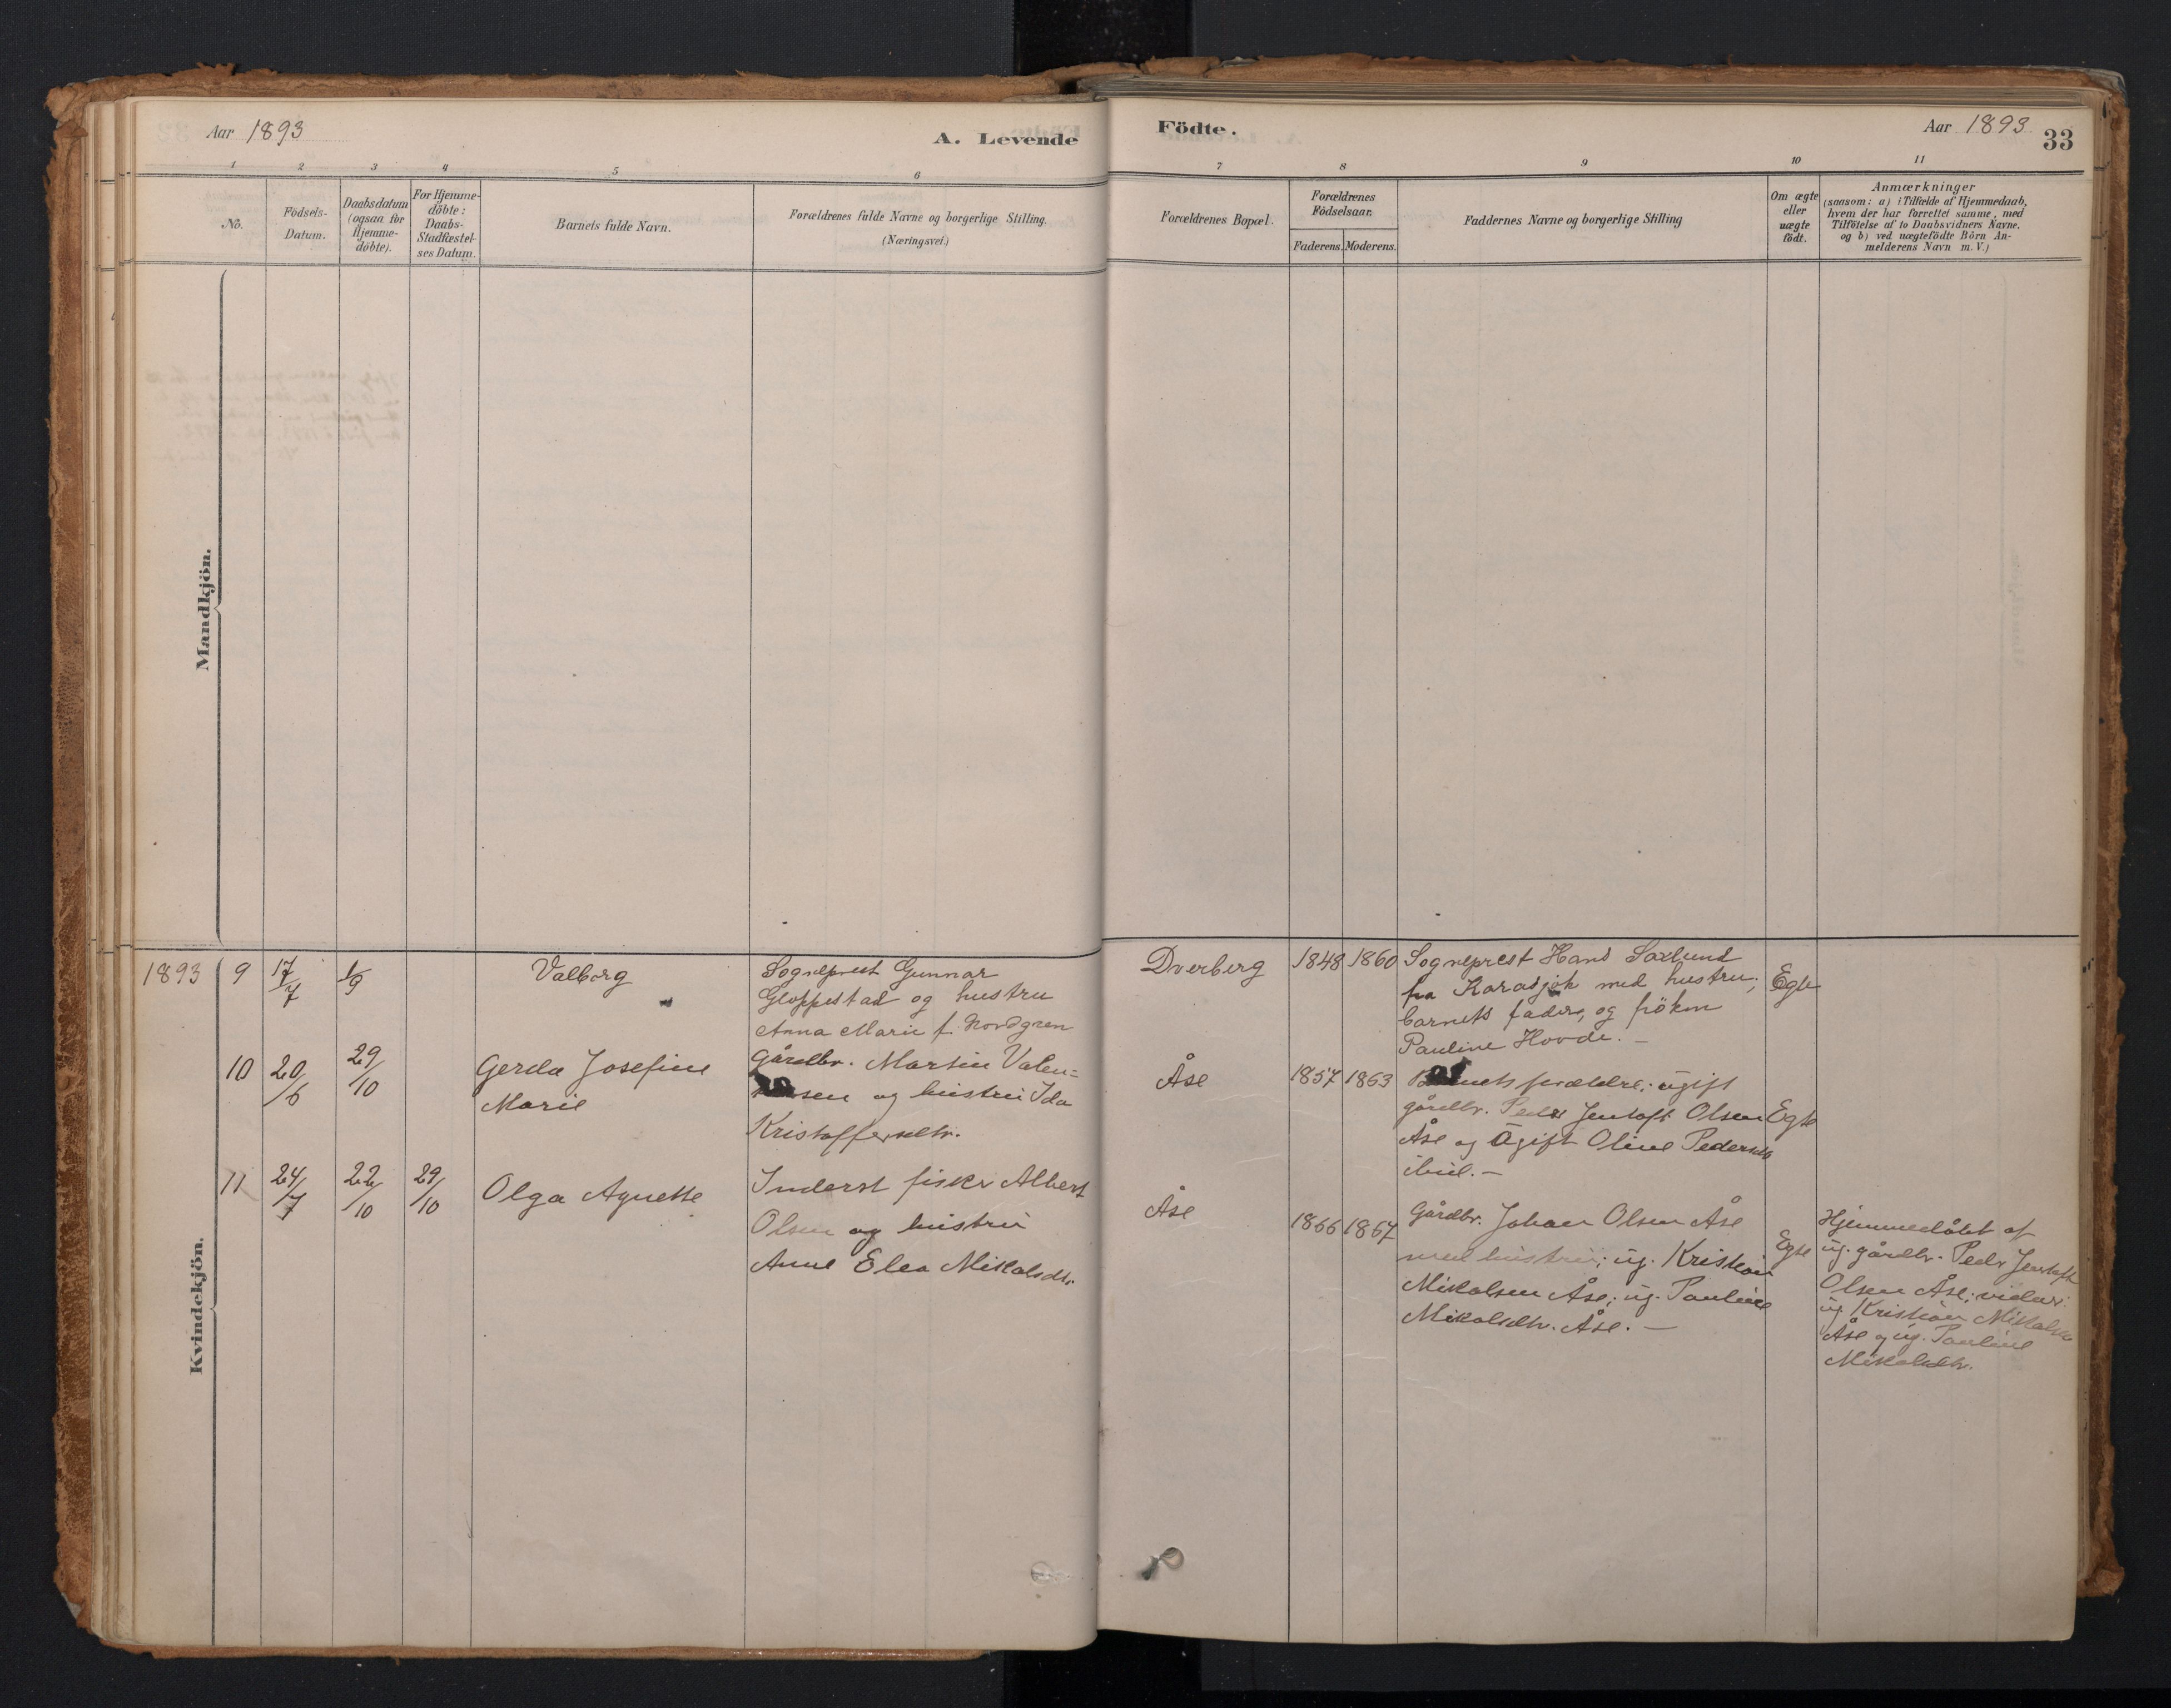 Aar 1893
A. Levende
Födte.
Aar 1893
33
1 2 3 4 5 6 7 8 9 10 11
No.
Födsels-
Datum.
Daabsdatum
(ogsaa for
Hjemme-
döbte).
For Hjemme-
döbte:
Daabs-
Stadfæstel-
ses Datum.
Barnets fulde Navn.
Forældrenes fulde Navne og borgerlige Stilling.
(Næringsvei.)
Forældrenes Bopæl.
Forældrenes
Födselsaar.
Faderens. Moderens.
Faddernes Navne og borgerlige Stilling
Om ægte
eller
uægte
födt.
Anmærkninger
(saasom: a) i Tilfælde af Hjemmedaab,
hvem der har forrettet samme, med
Tilföielse af to Daabsvidners Navne,
og b) ved uægtefödte Börn An-
melderens Navn m. V.)
Mandkjön.
Kvindekjön.
1893
9 17/7 1/9
Valborg
Sogneprest Gunnar
Gloppestad og hustru
Anna Marie f. Nordgren
Dverberg
1848 1860
Sogneprest Hans Saxlund
fra Karasjok med hustru;
barnets fader, og fröken
Pauline Hovde. —
Egte
10 20/6 29/10
Gerda Josefine
Marie
Gårdbr. Martin Valen=
sen og hustru Ida
Kristoffersdtr.
Åse
1857 1863
Barnets forældre; ugift
gårdbr. Peder Jentoft Olsen
Åse og ugift Oline Pedersdtr
ibid. —
Egte
11 24/7 22/10 29/10
Olga Agnette
Inderst fisker Albert
Olsen og hustru
Anne Elea Mikalsdtr.
Åse
1866 1867
Gårdbr. Johan Olsen Åse
med hustru; ug. Kristian
Mikalsen Åse; ug. Pauline
Mikalsdtr. Åse. —
Egte
Hjemmedöbt af
ug. gårdbr. Peder Jentoft
Olsen Åse; vidner:
ug. Kristian Mikalsen
Åse og ug. Pauline
Mikalsdtr.